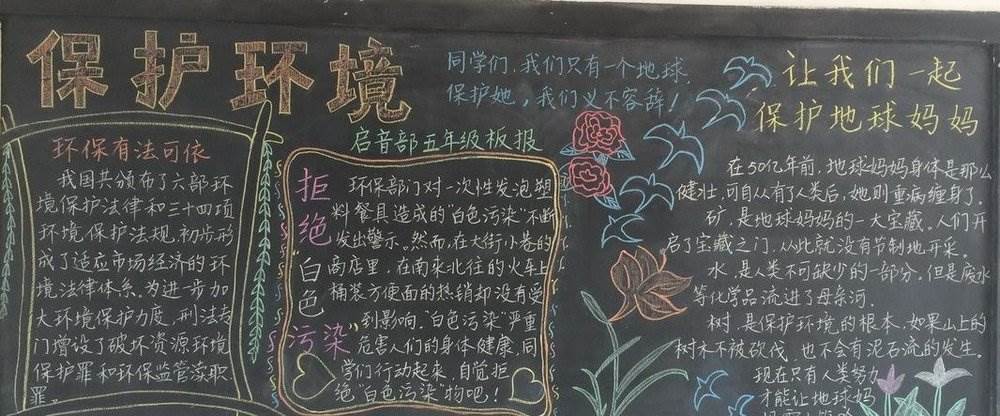 保护环境
同学们，我们只有一个地球，
保护她，我们义不容辞！
启音部五年级板报
环保有法可依
我国共颁布了六部环
境保护法律和三十四项
环境保护法规，初步形
成了适应市场经济的环
境法律体系。为进步加
大环境保护力度，刑法专
门增设了破坏资源环境
保护罪和环保监管渎职
罪。
拒绝“白色污染”
环保部门对一次性发泡塑
料餐具造成的“白色污染”不断
发出警示。然而，在大街小巷的
商店里，在南来北往的火车上
桶装方便面的热销却没有受
到影响。“白色污染”严重
危害人们的身体健康，同
学们行动起来，自觉拒
绝“白色污染”物吧！
让我们一起
保护地球妈妈
在50亿年前，地球妈妈身体是那么
健壮，可自从有了人类后，她则重病缠身了。
矿，是地球妈妈的一大宝藏。人们开
启了宝藏之门，从此就没有节制地开采。
水，是人类不可缺少的一部分，但是废水
等化学品流进了母亲河。
树，是保护环境的根本，如果山上的
树木不被砍伐，也不会有泥石流的发生。
现在只有人类努力
才能让地球妈